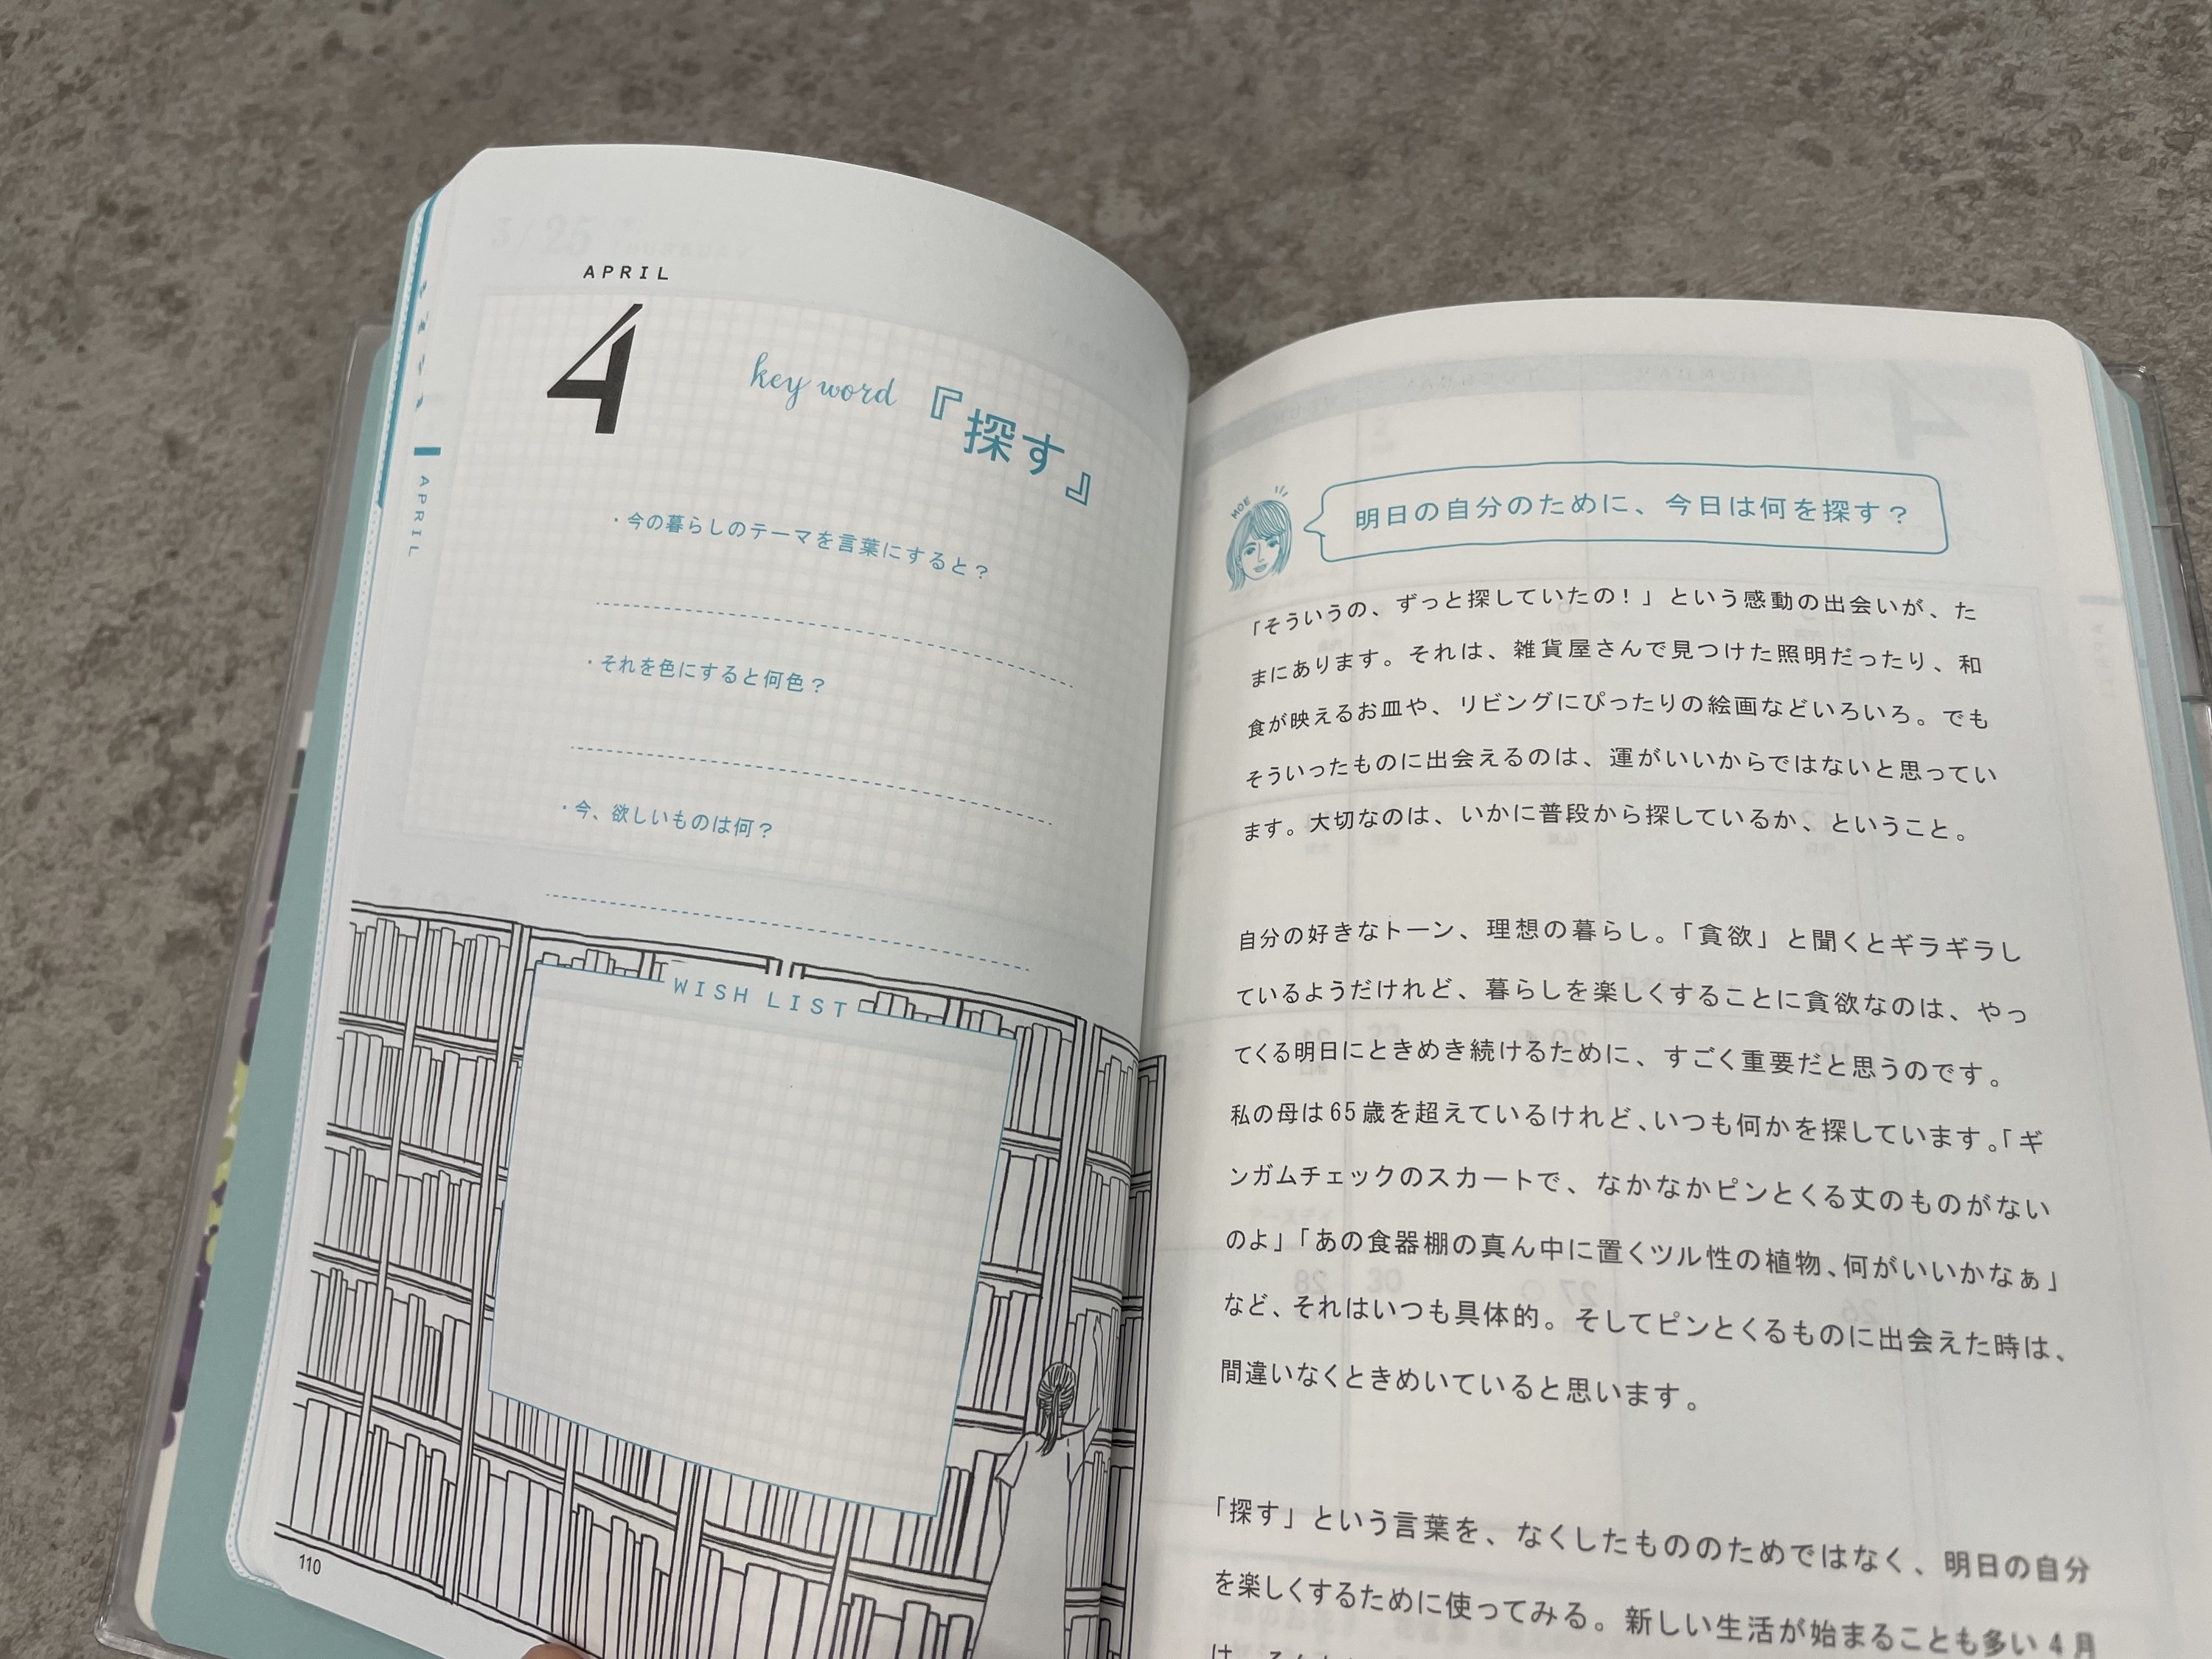 APRIL
4
key word 『探す』
APRIL
・今の暮らしのテーマを言葉にすると？
・それを色にすると何色？
・今、欲しいものは何？
WISH LIST
110
MOE
明日の自分のために、今日は何を探す？
「そういうの、ずっと探していたの！」という感動の出会いが、た
まにあります。それは、雑貨屋さんで見つけた照明だったり、和
食が映えるお皿や、リビングにぴったりの絵画などいろいろ。でも
そういったものに出会えるのは、運がいいからではないと思ってい
ます。大切なのは、いかに普段から探しているか、ということ。
自分の好きなトーン、理想の暮らし。「貪欲」と聞くとギラギラし
ているようだけれど、暮らしを楽しくすることに貪欲なのは、やっ
てくる明日にときめき続けるために、すごく重要だと思うのです。
私の母は65歳を超えているけれど、いつも何かを探しています。「ギ
ンガムチェックのスカートで、なかなかピンとくる丈のものがない
のよ」「あの食器棚の真ん中に置くツル性の植物、何がいいかなぁ」
など、それはいつも具体的。そしてピンとくるものに出会えた時は、
間違いなくときめいていると思います。
「探す」という言葉を、なくしたもののためではなく、明日の自分
を楽しくするために使ってみる。新しい生活が始まることも多い4月